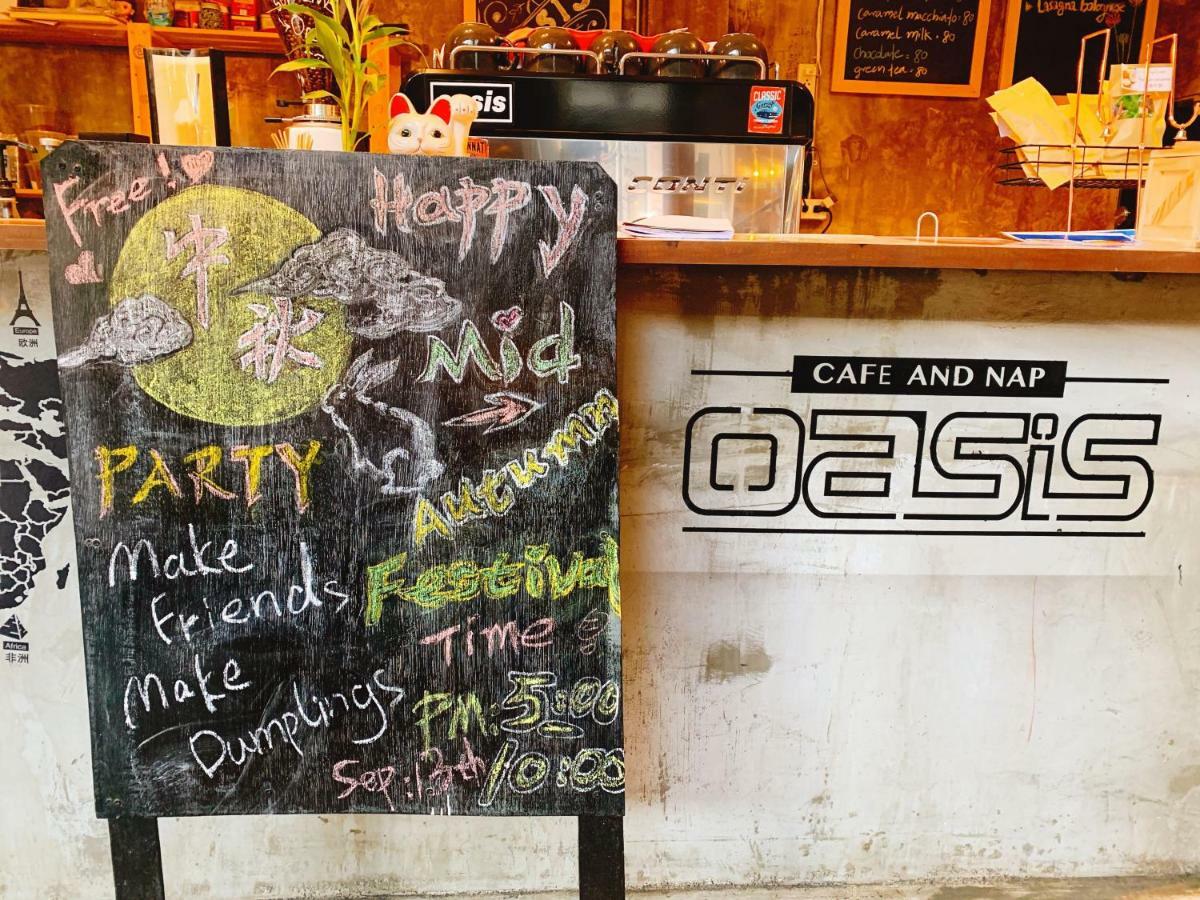 Caramel macchiato · 80
Caramel milk · 80
chocolate · 80
green tea · 80
Lasagna bolognese
CLASSIC
CONTI
Free!
中
秋
Happy
Mid
Autumn
Festival
PARTY
Make
Friends
Make
Dumplings
Time:
PM: 5:00
10:00
Sep. 13th
CAFE AND NAP
oasis
Europe
欧洲
Africa
非洲